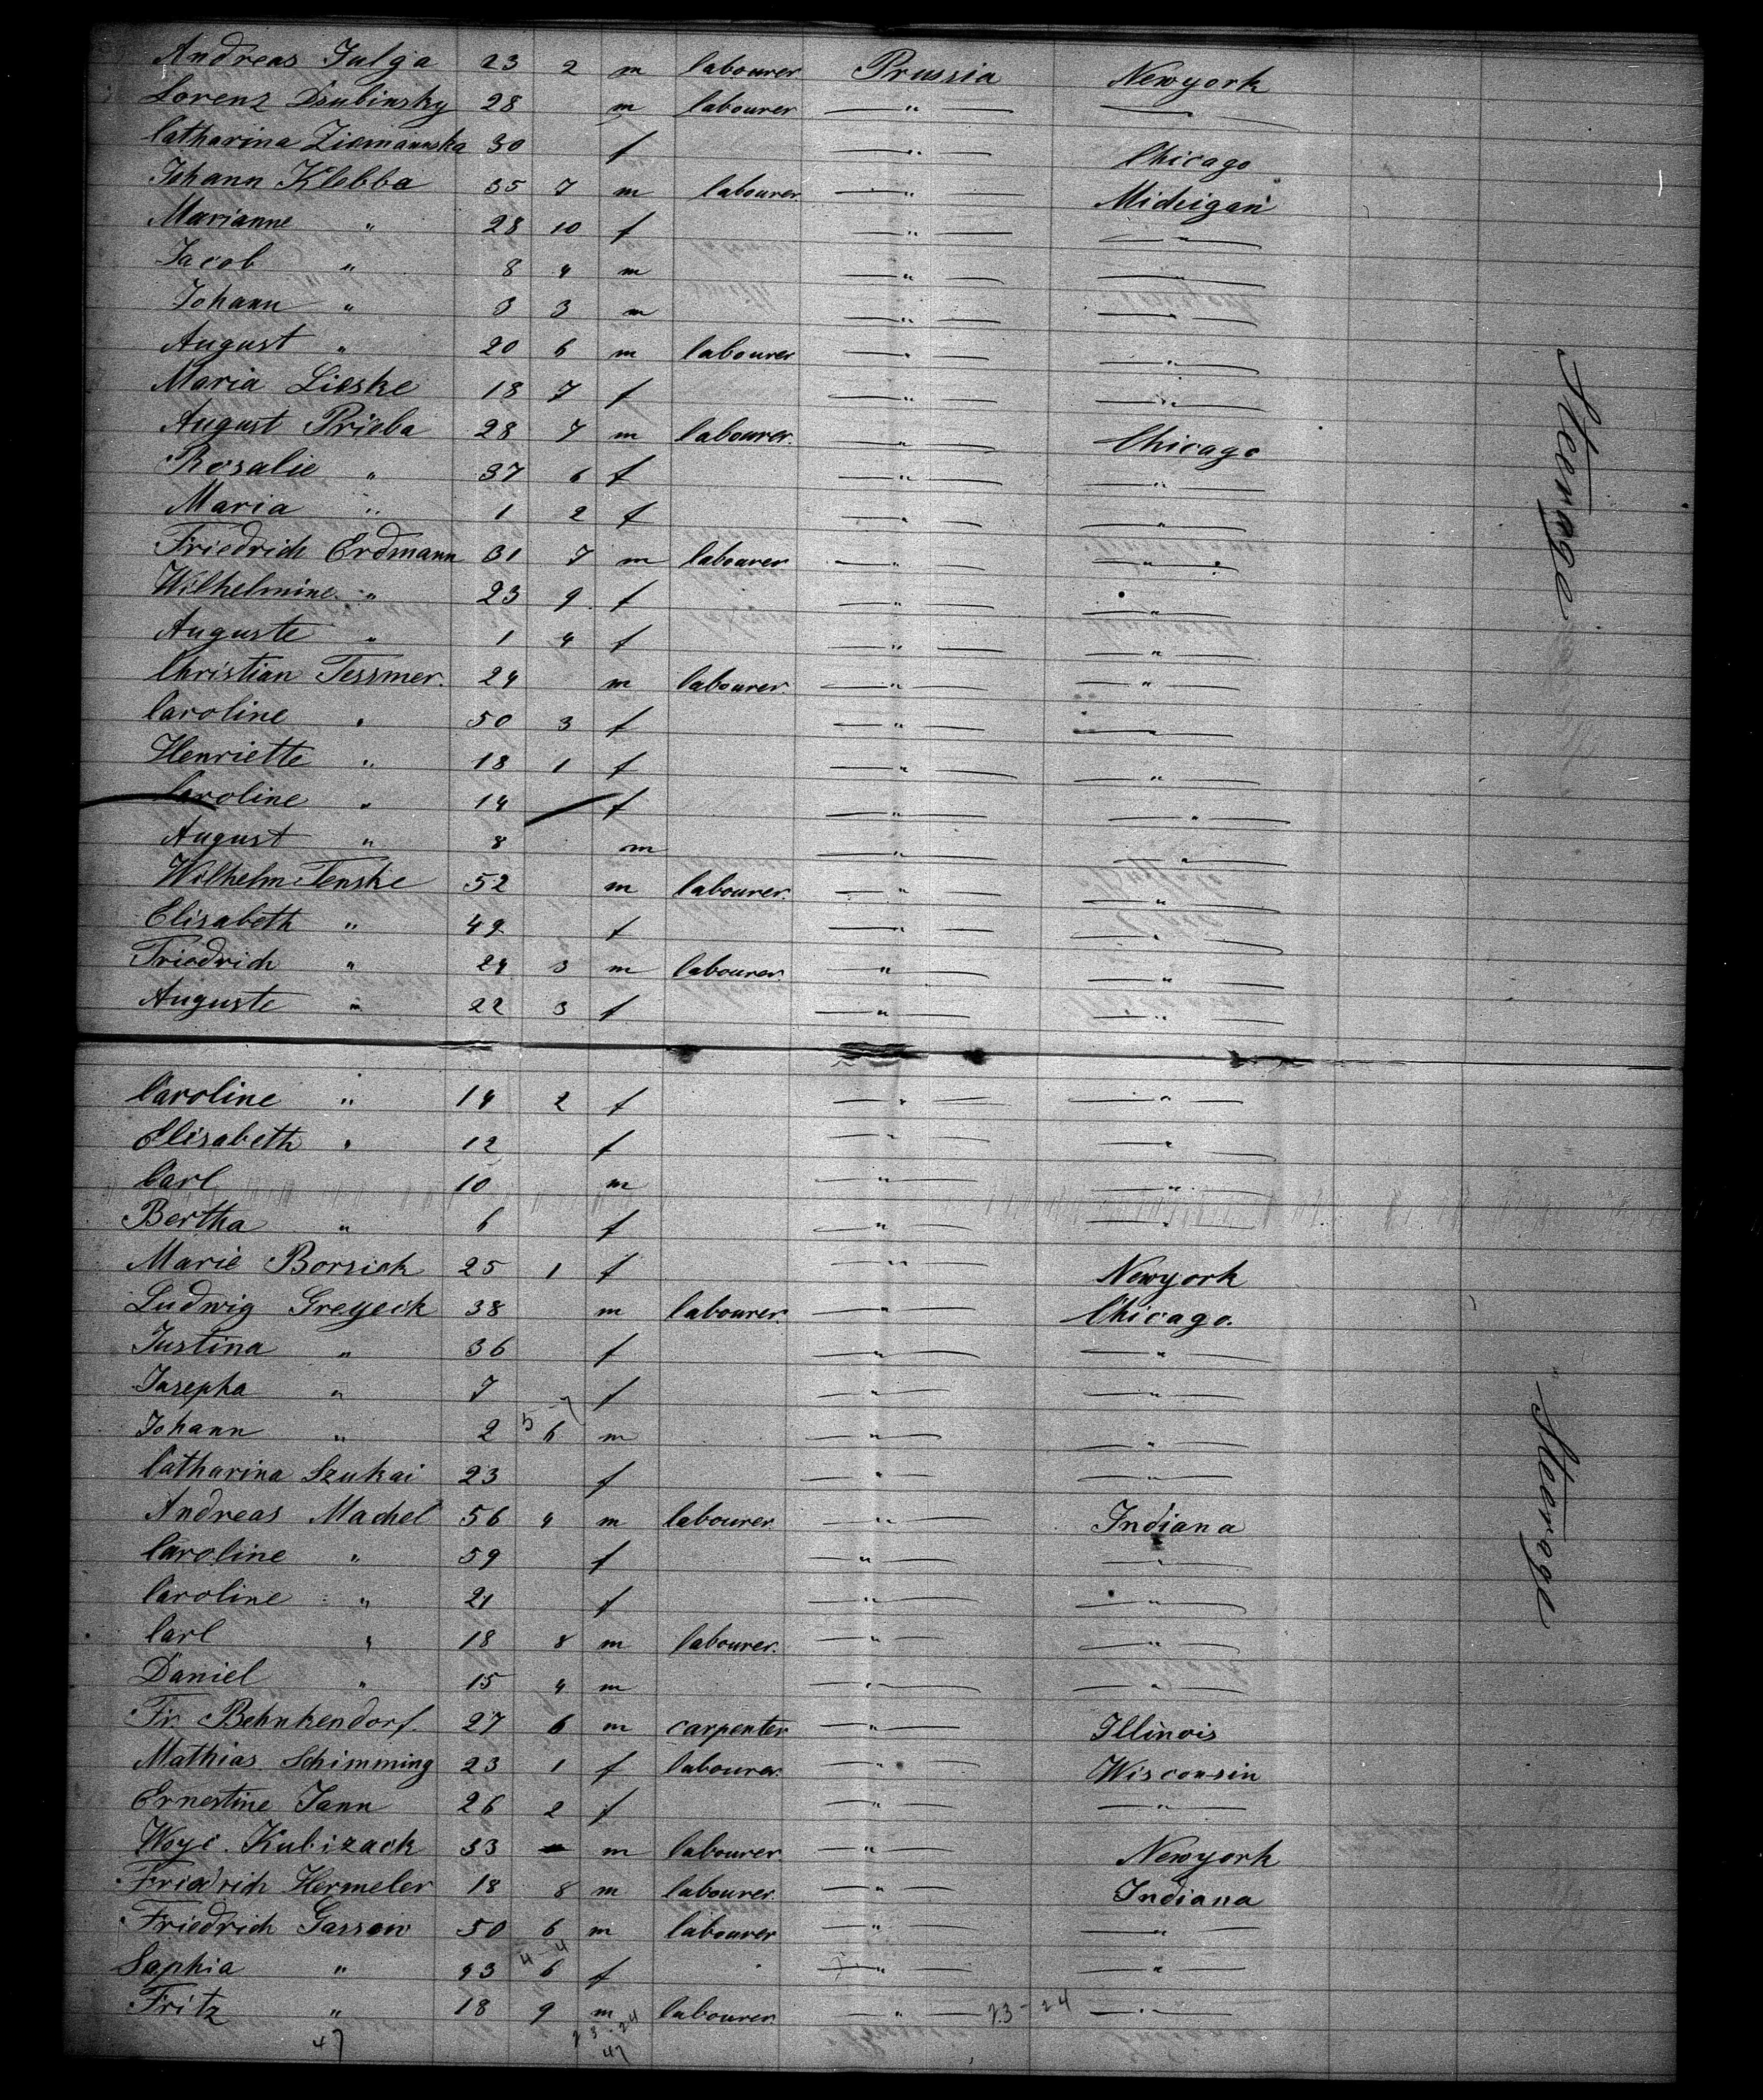 Andreas Julga 23 2 m labourer Prussia Newyork
Lorenz Dsubinsky 28 m labourer — " — — " —
Catharina Ziemannska 30 f — " — Chicago
Johann Klebba 35 7 m labourer — " — Michigan
Marianne " 28 10 f — " — — " —
Jacob " 8 4 m — " — — " —
Johann " 3 3 m — " — — " —
August " 20 6 m labourer — " — — " —
Maria Lieske 18 7 f — " — — " —
August Prieba 28 7 m labourer. — " — Chicago
Rosalie " 37 6 f — " — — " —
Maria " 1 2 f — " — — " —
Friedrich Erdmann 31 7 m labourer — " — — " —
Wilhelmine " 23 9 f — " — — " —
Auguste " 1 4 f — " — — " —
Christian Tessmer. 24 m labourer — " — — " —
Caroline " 50 3 f — " — — " —
Henriette " 18 1 f — " — — " —
Caroline " 14 f — " — — " —
August " 8 m — " — — " —
Wilhelm Tenske 52 m labourer. — " — — " —
Elisabeth " 49 f — " — — " —
Friedrich " 24 3 m labourer. — " — — " —
Auguste " 22 3 f — " — — " —
Steerage
Caroline " 14 2 f — " — — " —
Elisabeth " 12 f — " — — " —
Carl 10 m — " — — " —
Bertha " 6 f — " — — " —
Marie Borsick 25 1 f — " — Newyork
Ludwig Greyeck 38 m labourer. — " — Chicago.
Justina " 36 f — " — — " —
Josepha " 7 f — " — — " —
Johann " 2 6 m — " — — " —
Catharina Szukai 23 f — " — — " —
Andreas Machel 56 4 m labourer. — " — Indiana
Caroline " 59 f — " — — " —
Caroline " 21 f — " — — " —
Carl " 18 8 m labourer. — " — — " —
Daniel " 15 4 m — " — — " —
Fr. Behnkendorf. 27 6 m carpenter — " — Illinois
Mathias Schimming 23 1 f labourer. — " — Wisconsin
Ernestine Jann 26 2 f — " — — " —
Woye. Kubizack 33 m labourer. — " — Newyork
Friedrich Hermeler 18 8 m labourer. — " — Indiana
Friedrich Gassow 50 6 m labourer — " — — " —
Sophia " 43 6 f — " — — " —
Fritz " 18 9 m labourer. — " — 23-24 — " —
47 23-24
47
Steerage